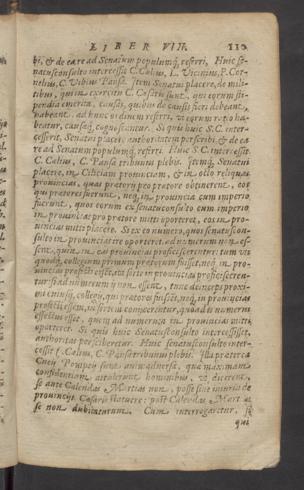 LIBER VII. 110
bi, & de ea re ad Senatum populumq́; referri, Huic se-
natusconsulto intercessit C. Cælius, L. Vicinius, P. Cor-
nelius, C. Vibius Pansa. Item Senatui placere, de mili-
tibus, qui in exercitu C. Cæsaris sunt, qui eorum sti-
pendia emerita, causas, quibus de causis
habeant, ad hunc ordinem referri, vt eorum ratio ha-
beatur, causæq́; cognoscantur. Si quis huic S. C. inter-
cesserit, Senatui placere, auctoritatem perscribi & de ea
re ad Senatum populumq́; referri. Huic S. C. intercessit
C. Cælius, C. Pansa tribunus plebis. Itemq́; Senatui
placere, in Ciliciam prouinciam, & in octo reliquas
prouincias, quas prætorij pro prætore obtinerent, eos
qui prætores fuerunt, neq́; in prouincia cum imperio
fuerunt, quos eorum ex senatusconsulto cum imperio
in prouincias pro prætore mitti oporteret, eos in pro-
uincias mitti placere. Si ex eo numero, quos senatuscon-
sulto in prouincias ire oporteret, ad numerum non es-
sent, qui in eas prouincias proficiscerentur: tum vti
quodq́; collegium primum prætorum fuisset, neq́; in pro-
uincias profecti essent, ita sorte in prouincias proficiscren-
tur: si ad numerum ij non essent, tunc deinceps proxi-
mi cuiusq́; collegij, qui prætores fuissent, neq́; in prouincias
profecti essent, in sortem coniicerentur, quoad is numerus
effectus esset, quem ad numerum in prouincias mitti
oporteret. Si quis huic Senatusconsulto intercessisset,
authoritas perscriberetur. Huic senatusconsulto inter-
cessit C. Cælius, C. Pansa tribunus plebis. Illa præterea
Cneij Pompeij sunt animaduersa, quæ maximam
confidentiam attulerunt hominibus, vt diceret,
se ante Calendas Martias non posse sine iniuria de
prouincijs Cæsaris statuere: post Calendas Martias
se non dubitaturum. Cum interrogaretur, si
qui